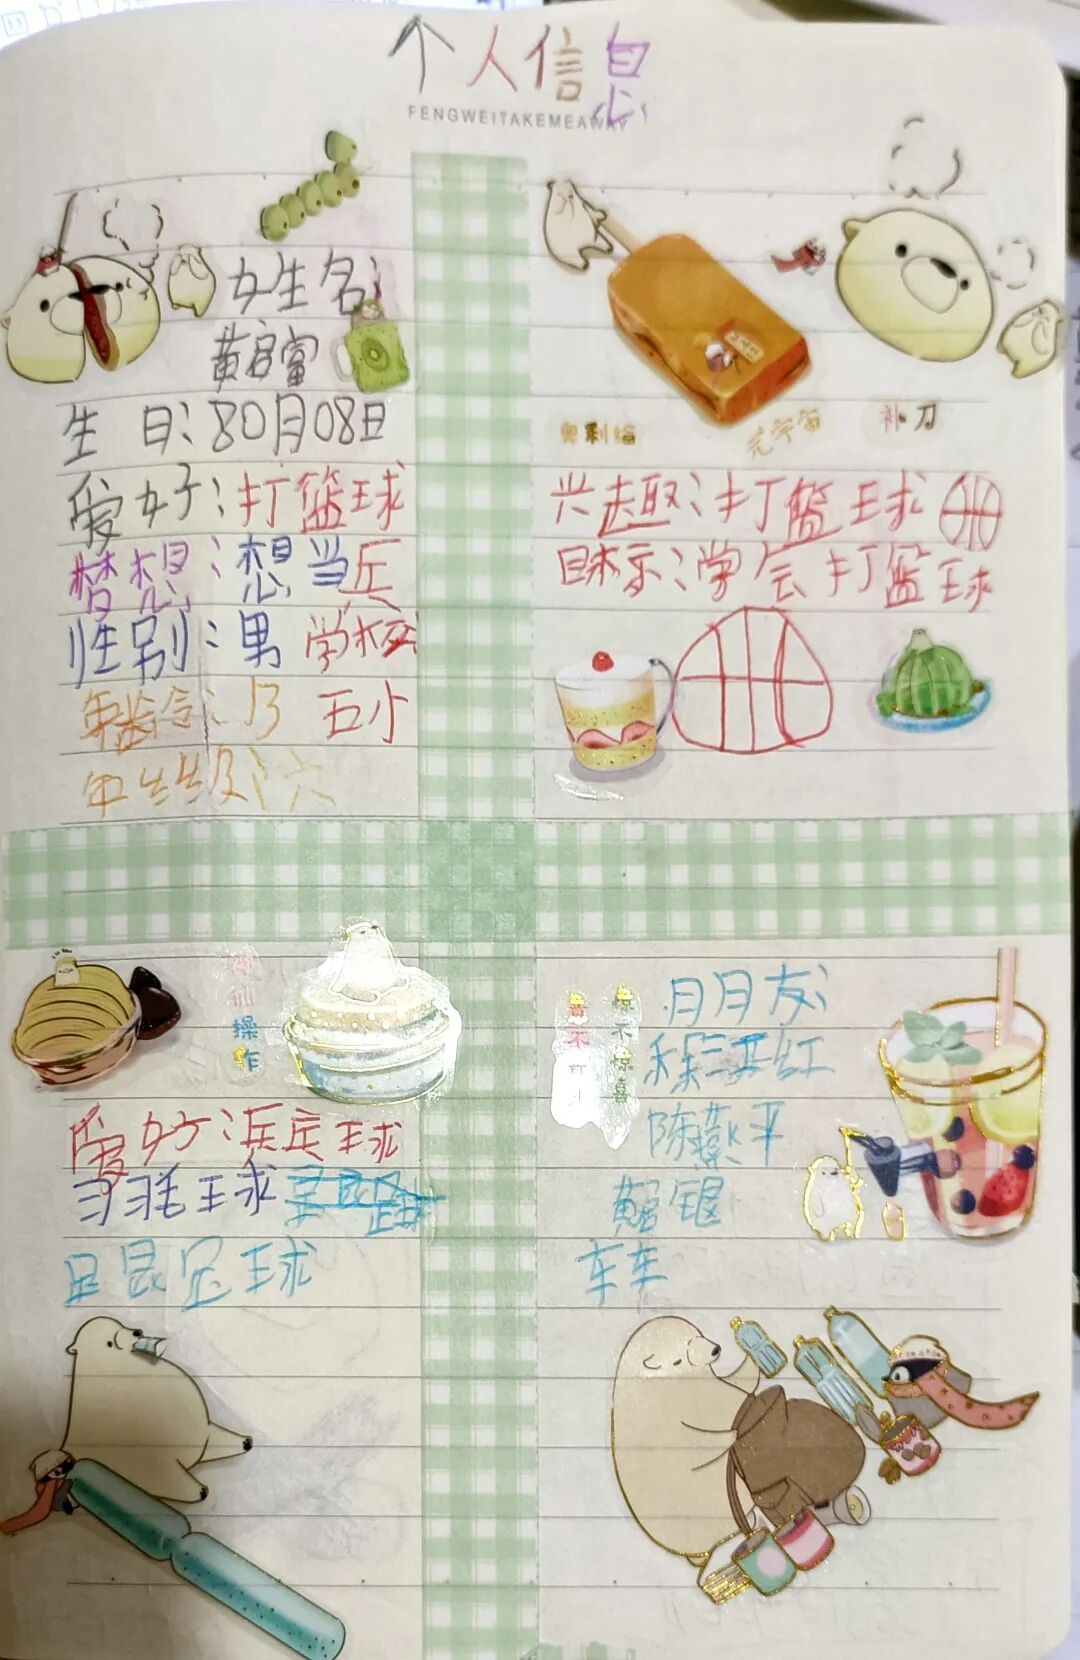 个人信息
FENGWEITAKEMEAWAY
姓名:
黄启富
生日:80月08日
爱好:打篮球
梦想:想当兵
性别:男 学校:
年龄:13 五小
年级:六
补刀
兴趣:打篮球
目标:学会打篮球
操作
爱好:乒乓球
羽毛球
足球
朋友:
陈燕平
车车